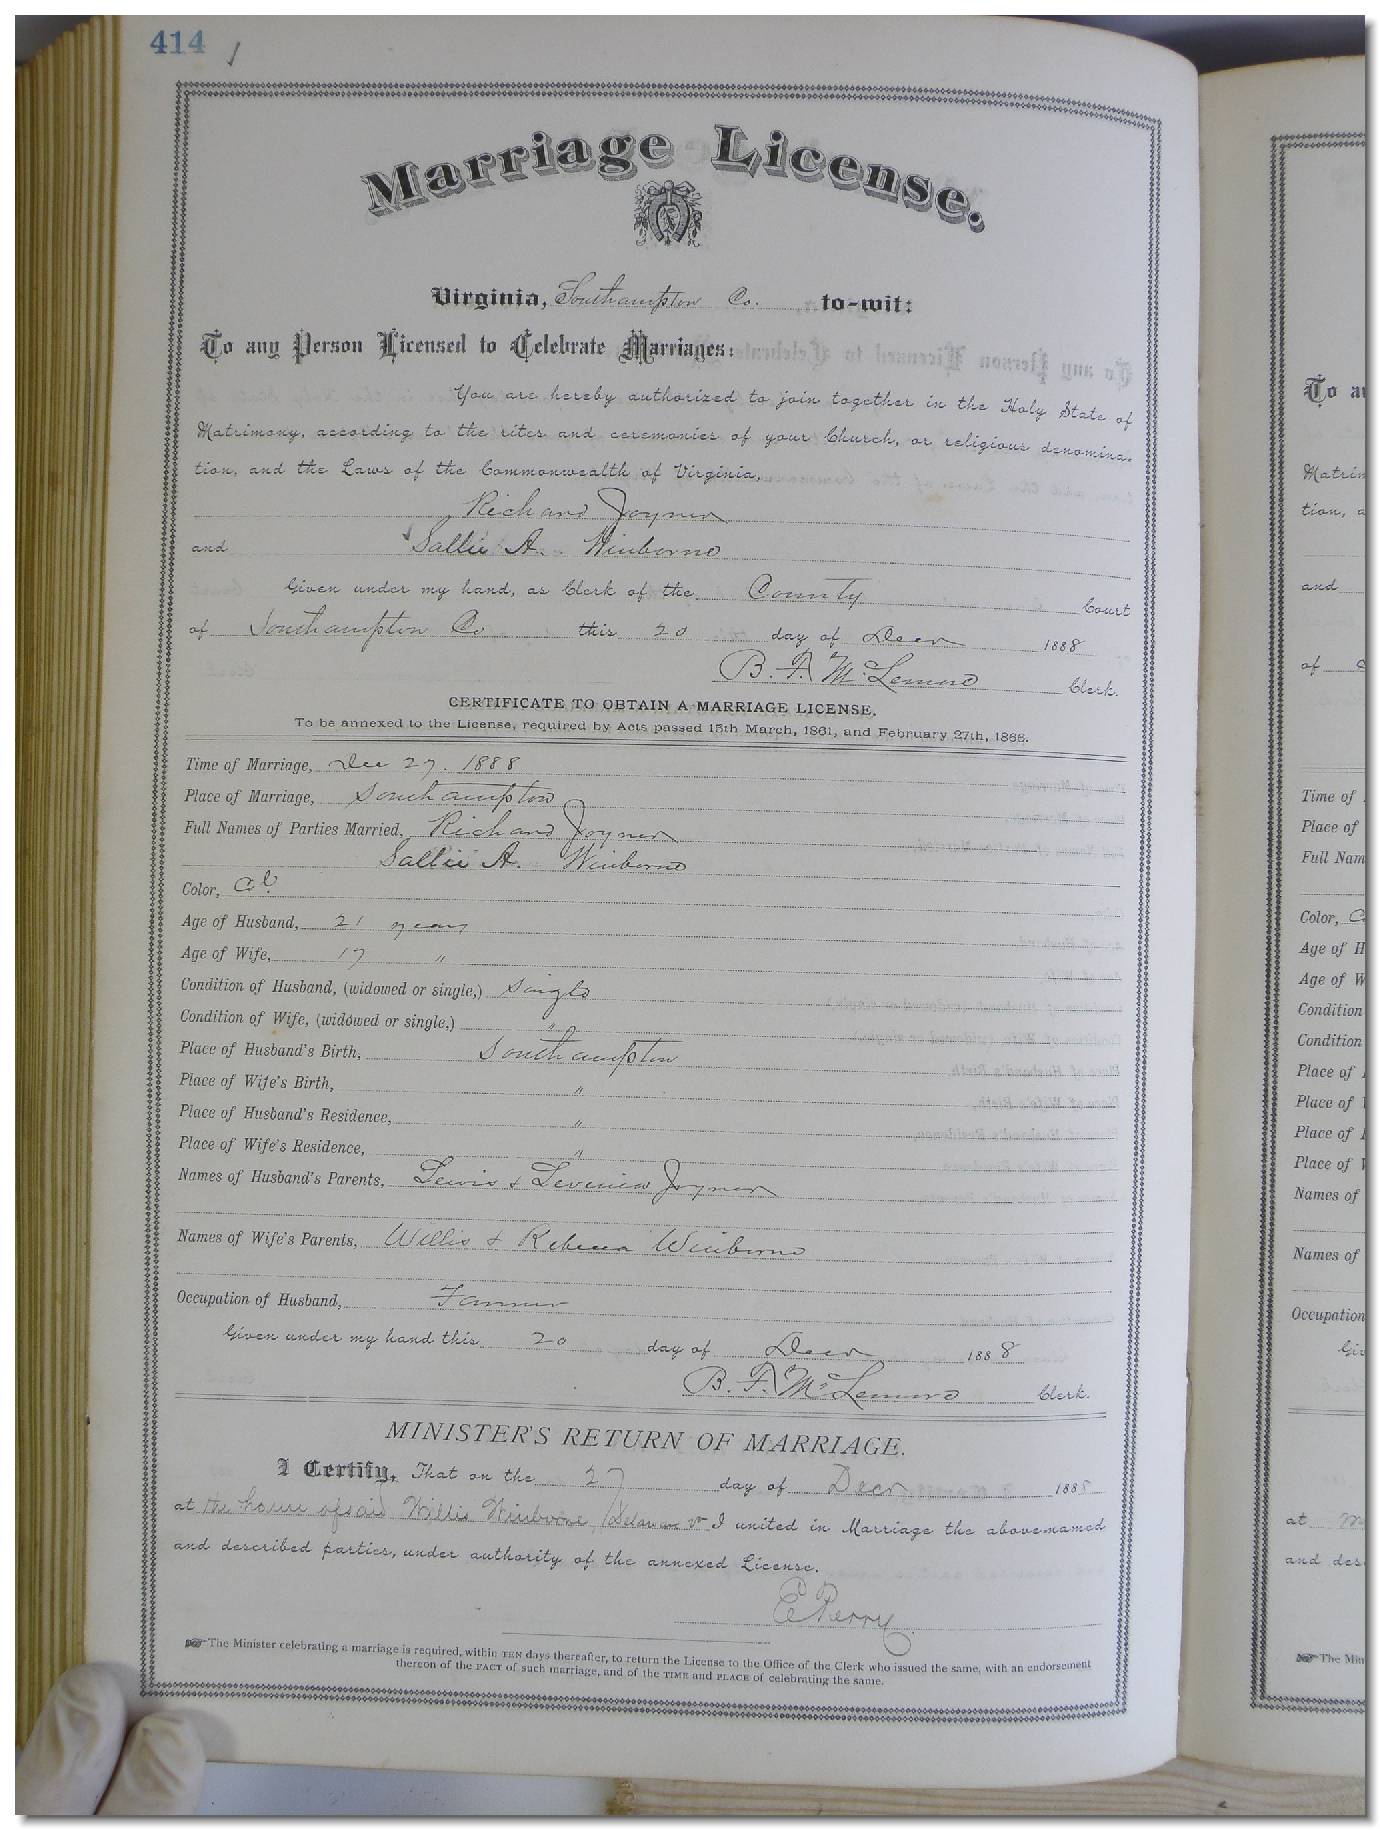 414
Marriage License.
Virginia, Southampton Co. to-wit:
To any Person Licensed to Celebrate Marriages:
You are hereby authorized to join together in the Holy State of
Matrimony, according to the rites and ceremonies of your Church, or religious denomina-
tion, and the Laws of the Commonwealth of Virginia,
Richard Joyner
and Sallie A. Winborne
Given under my hand, as Clerk of the County Court
of Southampton Co this 20 day of Decr 1888
B. F. McLemore Clerk.
CERTIFICATE TO OBTAIN A MARRIAGE LICENSE,
To be annexed to the License, required by Acts passed 15th March, 1861, and February 27th, 1866.
Time of Marriage, Dec 27. 1888
Place of Marriage, Southampton
Full Names of Parties Married, Richard Joyner
Sallie A. Winborne
Color, Col
Age of Husband, 21 years
Age of Wife, 17 "
Condition of Husband, (widowed or single,) Single
Condition of Wife, (widowed or single,) "
Place of Husband's Birth, Southampton
Place of Wife's Birth, "
Place of Husband's Residence, "
Place of Wife's Residence, "
Names of Husband's Parents, Lewis & Levenia Joyner
Names of Wife's Parents, Willis & Rebecca Winborne
Occupation of Husband, Farmer
Given under my hand this 20 day of Decr 1888
B. F. McLemore Clerk.
MINISTER'S RETURN OF MARRIAGE.
I Certify, That on the 27 day of Decr 1888
at the house of said Willis Winborne, I united in Marriage the above-named
and described parties, under authority of the annexed License.
E Perry
The Minister celebrating a marriage is required, within TEN days thereafter, to return the License to the Office of the Clerk who issued the same, with an endorsement
thereon of the FACT of such marriage, and of the TIME and PLACE of celebrating the same.
To
Matrim
tion,
and
of
Time of
Place of
Full Nam
Color,
Age of H
Age of W
Condition
Condition
Place of
Place of
Place of
Place of
Names of
Names of
Occupation
at
and des
The Min